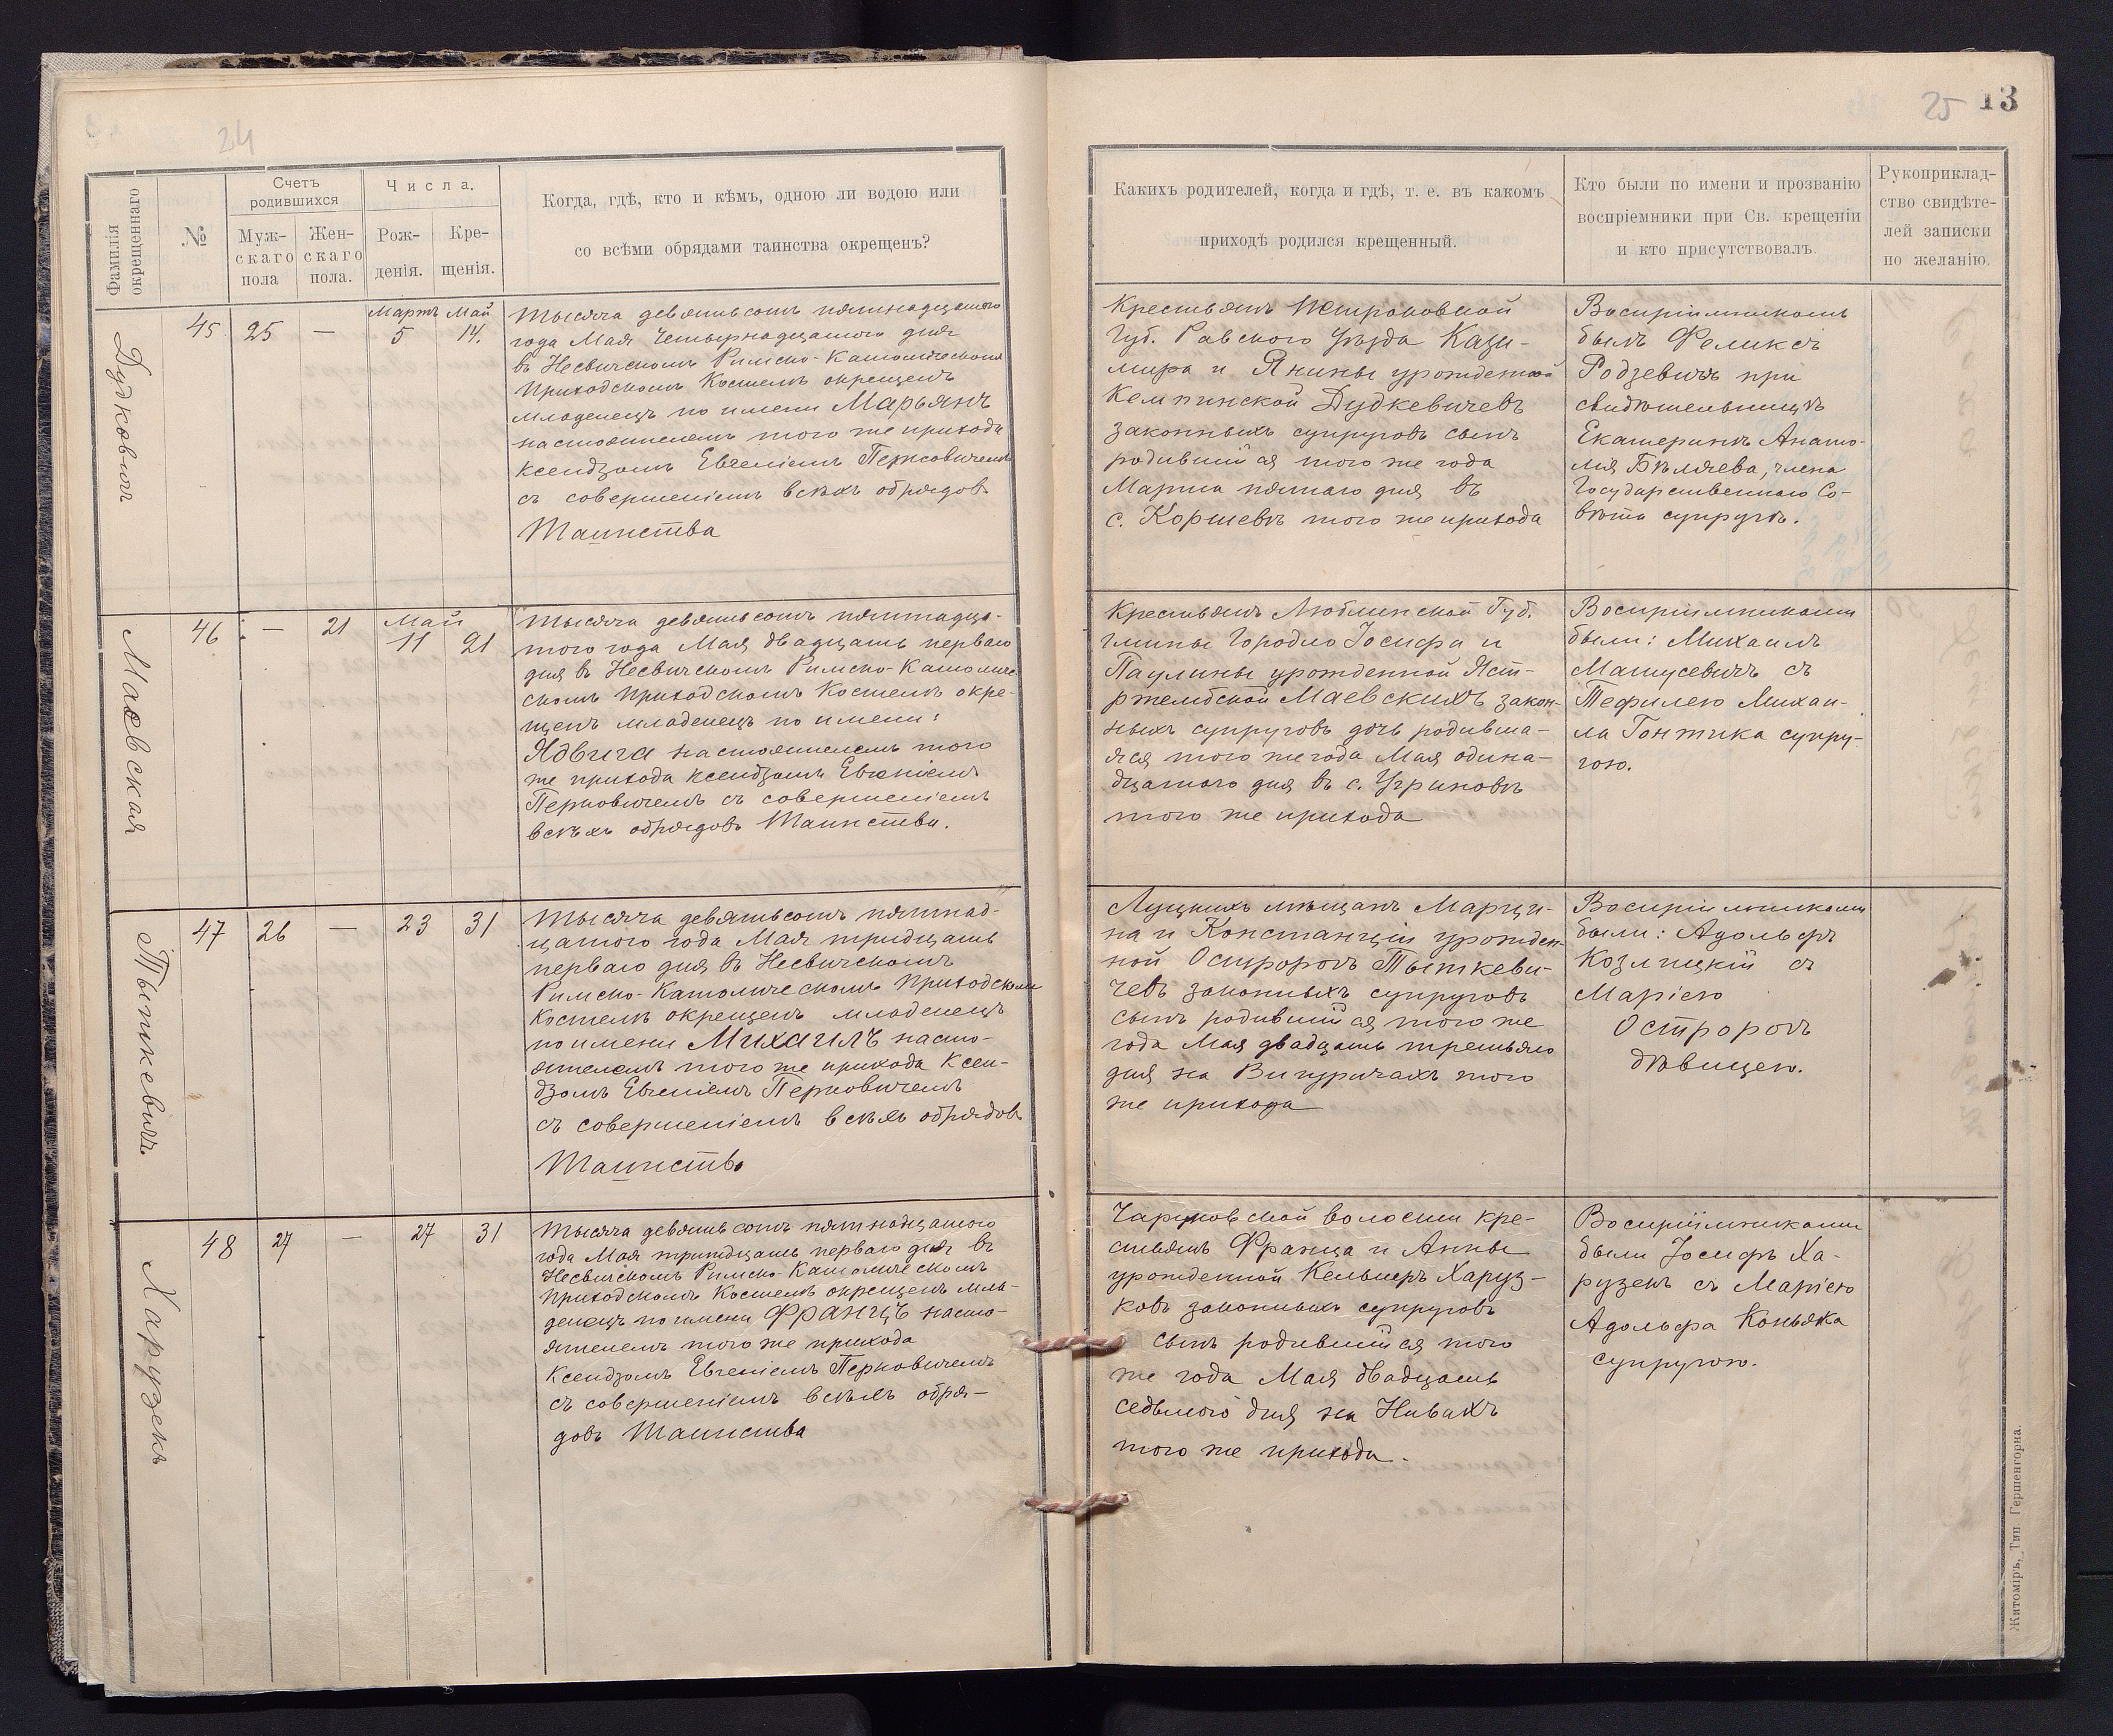 24
Фамилія окрещеннаго
№
Счетъ родившихся
Муж-скаго пола
Жен-скаго пола.
Числа.
Рож-денія.
Кре-щенія.
Когда, гдѣ, кто и кѣмъ, одною ли водою или
со всѣми обрядами таинства окрещенъ?
Дудковичъ
45
25
—
Мартъ
5
Май
14.
Тысяча девятьсотъ пятнадцатого
года Мая Четырнадцатого дня
въ Несвичскомъ Римско-Католическомъ
Приходскомъ Костелѣ окрещенъ
младенецъ по имени Марьянъ
настоятелемъ того же прихода
ксендзомъ Евгеніемъ
съ совершеніемъ всѣхъ обрядовъ
Таинства
Маевская
46
—
21
Май
11
21
Тысяча девятьсотъ пятнадца-
того года Мая двадцать перваго
дня въ Несвичскомъ Римско-Католиче
скомъ Приходскомъ Костелѣ окре-
щенъ младенецъ по имени:
Ядвига настоятелемъ того
же прихода ксендзомъ Евгеніемъ
Перковичемъ съ совершеніемъ
всѣхъ обрядовъ Таинства.
Тышкевичъ
47
26
—
23
31
Тысяча девятьсотъ пятнад-
цатого года Мая тридцать
перваго дня въ Несвичскомъ
Римско-Католическомъ Приходскомъ
Костелѣ окрещенъ младенецъ
по имени Михаилъ насто-
ятелемъ того же прихода Ксен-
дзомъ Евгеніемъ Перковичемъ
съ совершеніемъ всѣхъ обрядовъ
Таинство
Харузекъ
48
27
—
27
31
Тысяча девятьсотъ пятнадцатого
года Мая тритдцать перваго дня въ
Несвичскомъ Римско-Католическомъ
Приходскомъ Костелѣ окрещенъ мла-
денецъ по имени Францъ насто-
ятелемъ того же прихода
Ксендзомъ Евгеніемъ Перковичемъ
съ совершеніемъ всѣхъ обря-
довъ Таинства
25
13
Какихъ родителей, когда и гдѣ, т. е. въ какомъ
приходѣ родился крещенный.
Кто были по имени и прозванію
воспріемники при Св. крещеніи
и кто присутствовалъ.
Рукоприклад-
ство свидѣте-
лей записки
по желанію.
Крестьянъ Петроковской
Губ. Равского Уѣзда Кази-
мира и Янины урожденной
Кемпинской Дудкевичевъ
законныхъ супруговъ сынъ
родившійся того же года
Марта пятаго дня въ
с. Коршевѣ того же прихода
Воспріимникомъ
былъ Феликсъ
Родзевичъ при
свидѣтельницѣ
Екатеринѣ Анато-
лія Бѣляева, члена
Государственного Со-
вѣта супругѣ.
Крестьянъ Люблинской Губ.
гмины Городло Іосифа и
Паулины урожденной Яст-
ржембской Маевскихъ закон-
ныхъ супруговъ дочь родивша-
яся того же года Мая одина-
дцатого дня въ с. Угриновѣ
того же прихода
Воспріимниками
были: Михаилъ
Матусевичъ съ
Тефилею Михаи-
ла Гонтика супру-
гою.
Луцкихъ мѣщанъ Марци-
на и Констанціи урожден-
ной Остророгъ Тышкеви-
чевъ законныхъ супруговъ
сынъ родившійся того же
года Мая двадцать третьяго
дня на Вигуричахъ того
же прихода
Воспріимниками
были: Адольфъ
Козлицкій съ
Маріею
Остророгъ
дѣвицею.
волости кре-
стьянъ Франца и Анны
урожденной Кельнеръ Харуз-
ковъ законныхъ супруговъ
сынъ родившійся того
же года Мая двадцать
седьмого дня на Нивахъ
того же прихода.
Воспріимниками
были Іосифъ Ха-
рузекъ съ Маріею
Адольфа Коньяка
супругою.
Житоміръ, Тип. Гершенгорна.